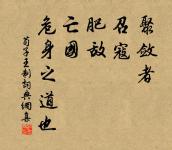 聚斂者
召寇
肥敌
亡國
危身之道也
荀子王制詞典網集